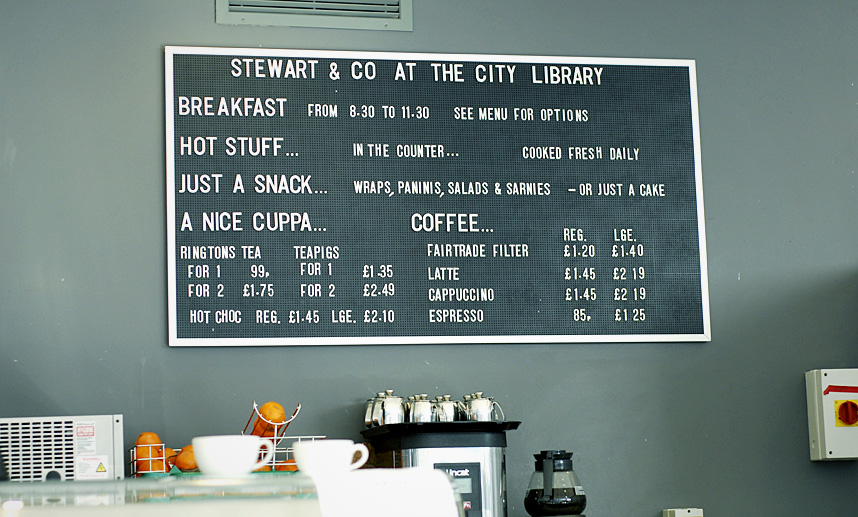 STEWART & CO AT THE CITY LIBRARY
BREAKFAST FROM 8.30 TO 11.30 SEE MENU FOR OPTIONS
HOT STUFF... IN THE COUNTER... COOKED FRESH DAILY
JUST A SNACK... WRAPS, PANINIS, SALADS & SARNIES – OR JUST A CAKE
A NICE CUPPA... COFFEE...
REG. LGE.
RINGTONS TEA TEAPIGS FAIRTRADE FILTER £1.20 £1.40
FOR 1 99P FOR 1 £1.35 LATTE £1.45 £2 19
FOR 2 £1.75 FOR 2 £2.49 CAPPUCCINO £1.45 £2 19
HOT CHOC REG. £1.45 LGE. £2.10 ESPRESSO 85P £1 25